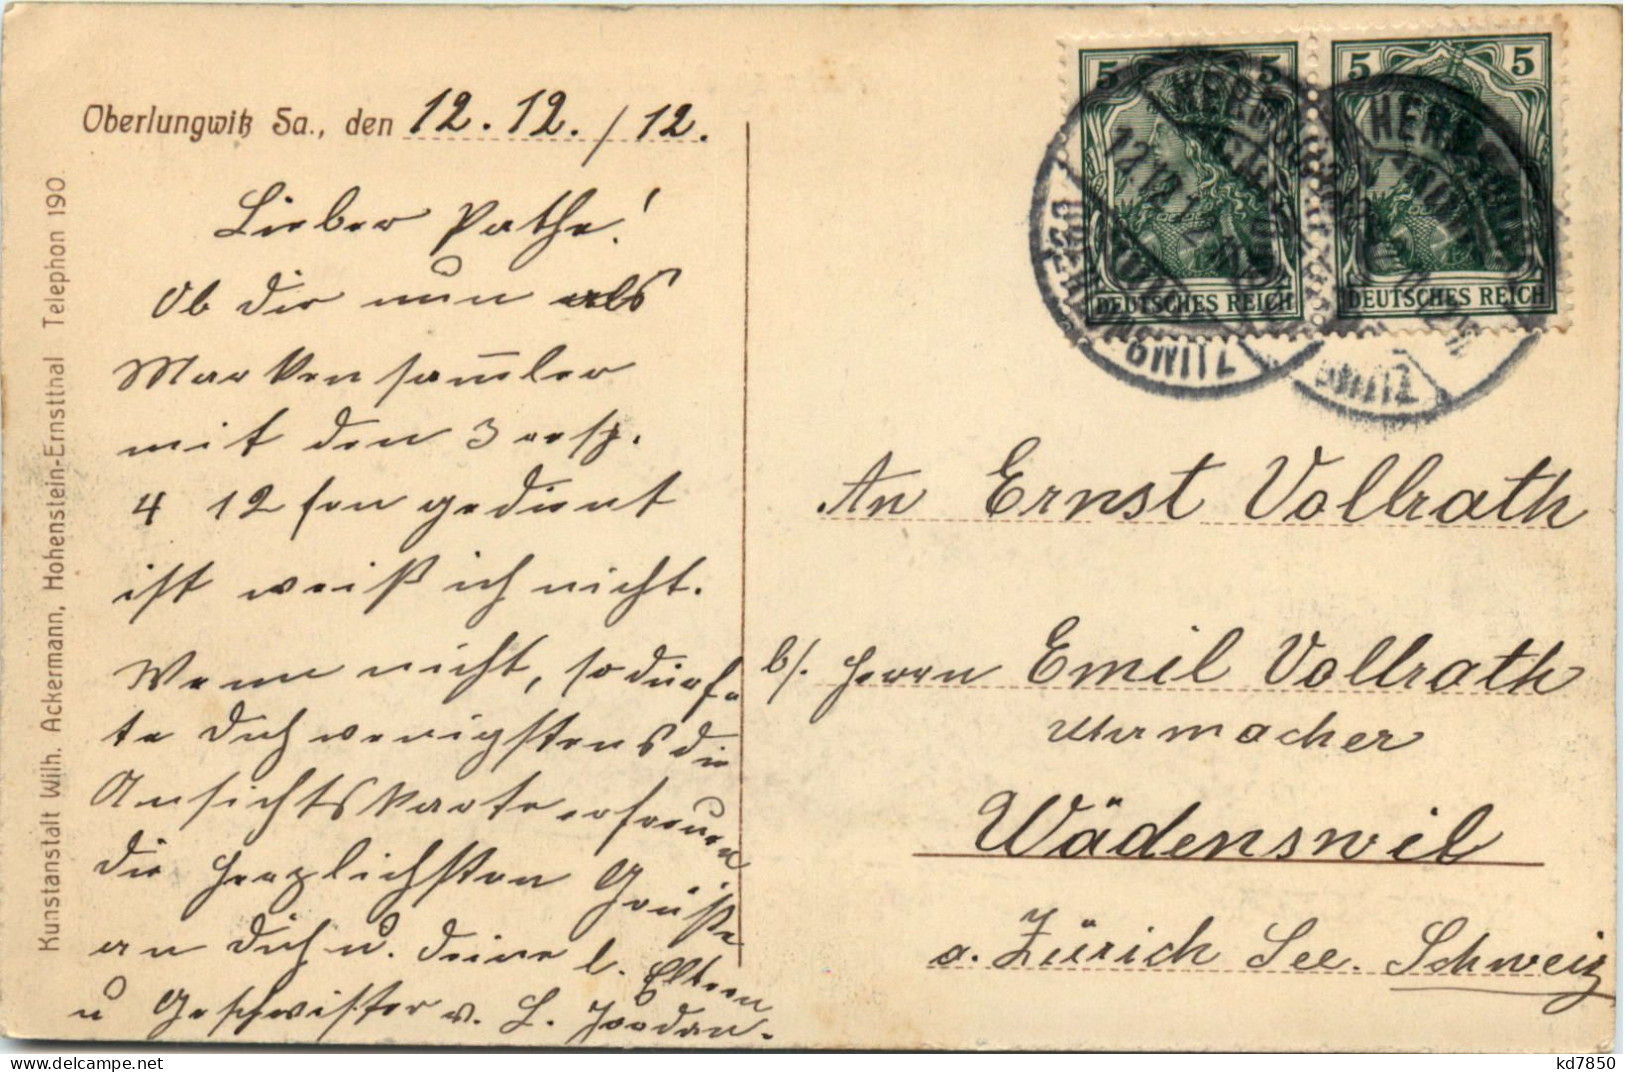 Oberlungwitz Sa., den 12. 12. / 12.
Lieber Pathe!
Ob dir nun als
Markensam̅ler
mit den 3 resp.
4 12 fen gedient
ist weiß ich nicht.
Wenn nicht, so dürf-
te dich wenigstens die
Ansichtskarte erfreuen
die herzlichsten Grüße
an dich u. deine l. Eltern
u Geschwister v. L. Jordan.
Kunstanstalt Wilh. Ackermann, Hohenstein-Ernstthal Telephon 190.
5 5
DEUTSCHES REICH
5 5
DEUTSCHES REICH
12.12.12
An Ernst Vollrath
b/. Herrn Emil Vollrath
Uhrmacher
Wädenswil
a. Zürich See. Schweiz
delcampe.net
kd7850